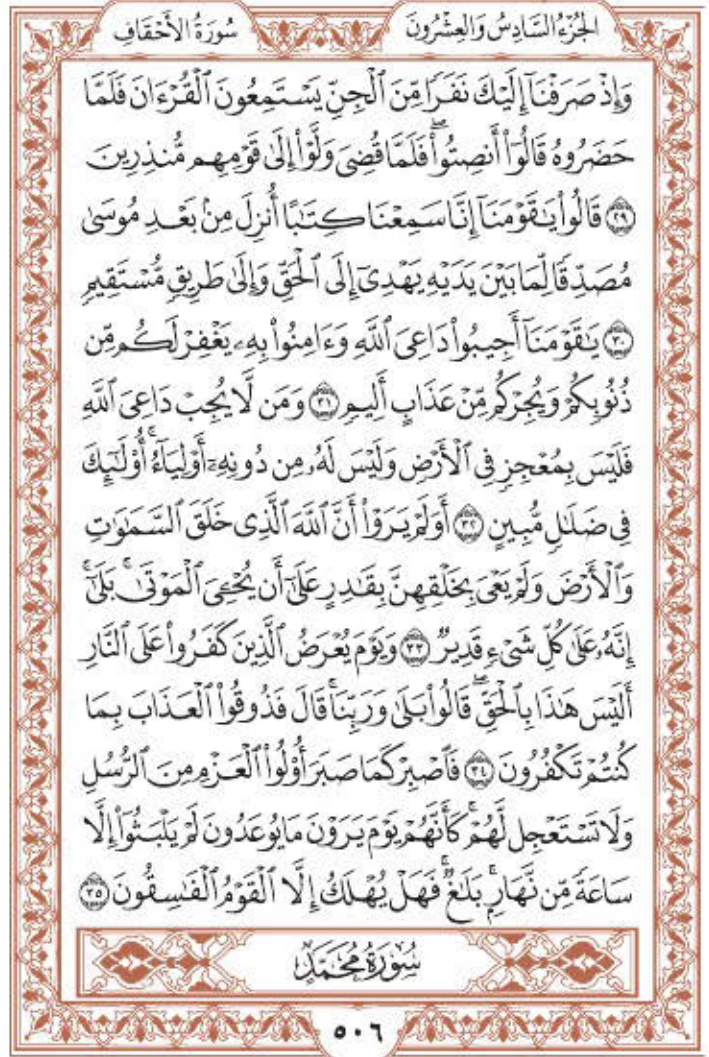 الجُزْءُ السَّادِسُ وَالعِشْرُونَ
سُورَةُ الأَحْقَافِ
وَإِذْ صَرَفْنَآ إِلَيْكَ نَفَرًا مِّنَ ٱلْجِنِّ يَسْتَمِعُونَ ٱلْقُرْءَانَ فَلَمَّا
حَضَرُوهُ قَالُوٓا۟ أَنصِتُوا۟ ۖ فَلَمَّا قُضِىَ وَلَّوْا۟ إِلَىٰ قَوْمِهِم مُّنذِرِينَ
٢٩ قَالُوا۟ يَٰقَوْمَنَآ إِنَّا سَمِعْنَا كِتَٰبًا أُنزِلَ مِنۢ بَعْدِ مُوسَىٰ
مُصَدِّقًا لِّمَا بَيْنَ يَدَيْهِ يَهْدِىٓ إِلَى ٱلْحَقِّ وَإِلَىٰ طَرِيقٍ مُّسْتَقِيمٍ
٣٠ يَٰقَوْمَنَآ أَجِيبُوا۟ دَاعِىَ ٱللَّهِ وَءَامِنُوا۟ بِهِۦ يَغْفِرْ لَكُم مِّن
ذُنُوبِكُمْ وَيُجِرْكُم مِّنْ عَذَابٍ أَلِيمٍ ٣١ وَمَن لَّا يُجِبْ دَاعِىَ ٱللَّهِ
فَلَيْسَ بِمُعْجِزٍ فِى ٱلْأَرْضِ وَلَيْسَ لَهُۥ مِن دُونِهِۦٓ أَوْلِيَآءُ ۚ أُو۟لَٰٓئِكَ
فِى ضَلَٰلٍ مُّبِينٍ ٣٢ أَوَلَمْ يَرَوْا۟ أَنَّ ٱللَّهَ ٱلَّذِى خَلَقَ ٱلسَّمَٰوَٰتِ
وَٱلْأَرْضَ وَلَمْ يَعْىَ بِخَلْقِهِنَّ بِقَٰدِرٍ عَلَىٰٓ أَن يُحْـِۧىَ ٱلْمَوْتَىٰ ۚ بَلَىٰٓ
إِنَّهُۥ عَلَىٰ كُلِّ شَىْءٍ قَدِيرٌ ٣٣ وَيَوْمَ يُعْرَضُ ٱلَّذِينَ كَفَرُوا۟ عَلَى ٱلنَّارِ
أَلَيْسَ هَٰذَا بِٱلْحَقِّ ۖ قَالُوا۟ بَلَىٰ وَرَبِّنَا ۚ قَالَ فَذُوقُوا۟ ٱلْعَذَابَ بِمَا
كُنتُمْ تَكْفُرُونَ ٣٤ فَٱصْبِرْ كَمَا صَبَرَ أُو۟لُوا۟ ٱلْعَزْمِ مِنَ ٱلرُّسُلِ
وَلَا تَسْتَعْجِل لَّهُمْ ۚ كَأَنَّهُمْ يَوْمَ يَرَوْنَ مَا يُوعَدُونَ لَمْ يَلْبَثُوٓا۟ إِلَّا
سَاعَةً مِّن نَّهَارٍۭ ۚ بَلَٰغٌ ۚ فَهَلْ يُهْلَكُ إِلَّا ٱلْقَوْمُ ٱلْفَٰسِقُونَ ٣٥
سُورَةُ مُحَمَّدٍ
٥٠٦